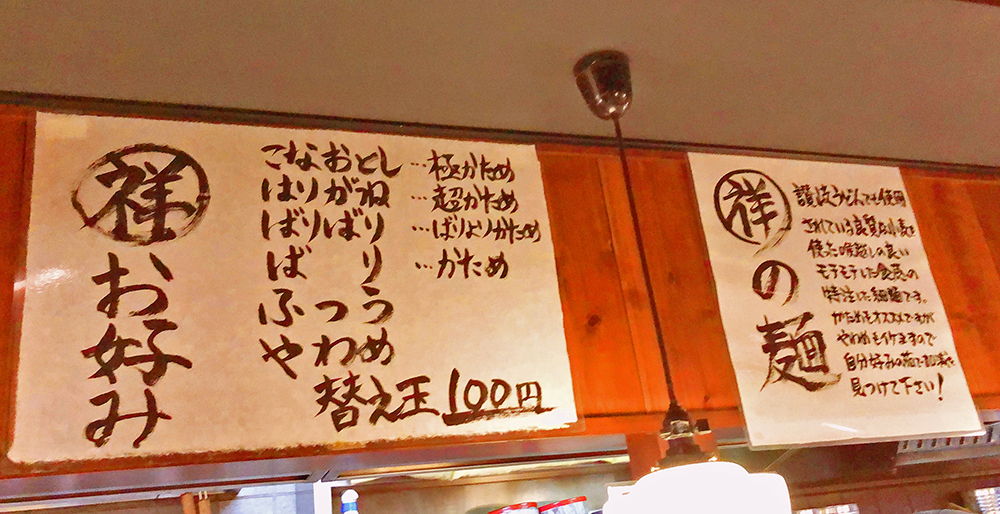 祥
お好み
こなおとし…極かため
はりがね…超かため
ばりばり…ばりよりかため
ばり…かため
ふつう
やわめ
替え玉100円
祥
の麺
讃岐うどんでも使用
されている良質な小麦を
使った喉越しの良い
モチモチした食感の
特注した細麺です。
かためもオススメですが
やわめもイケますので
自分好みの茹で加減を
見つけて下さい!